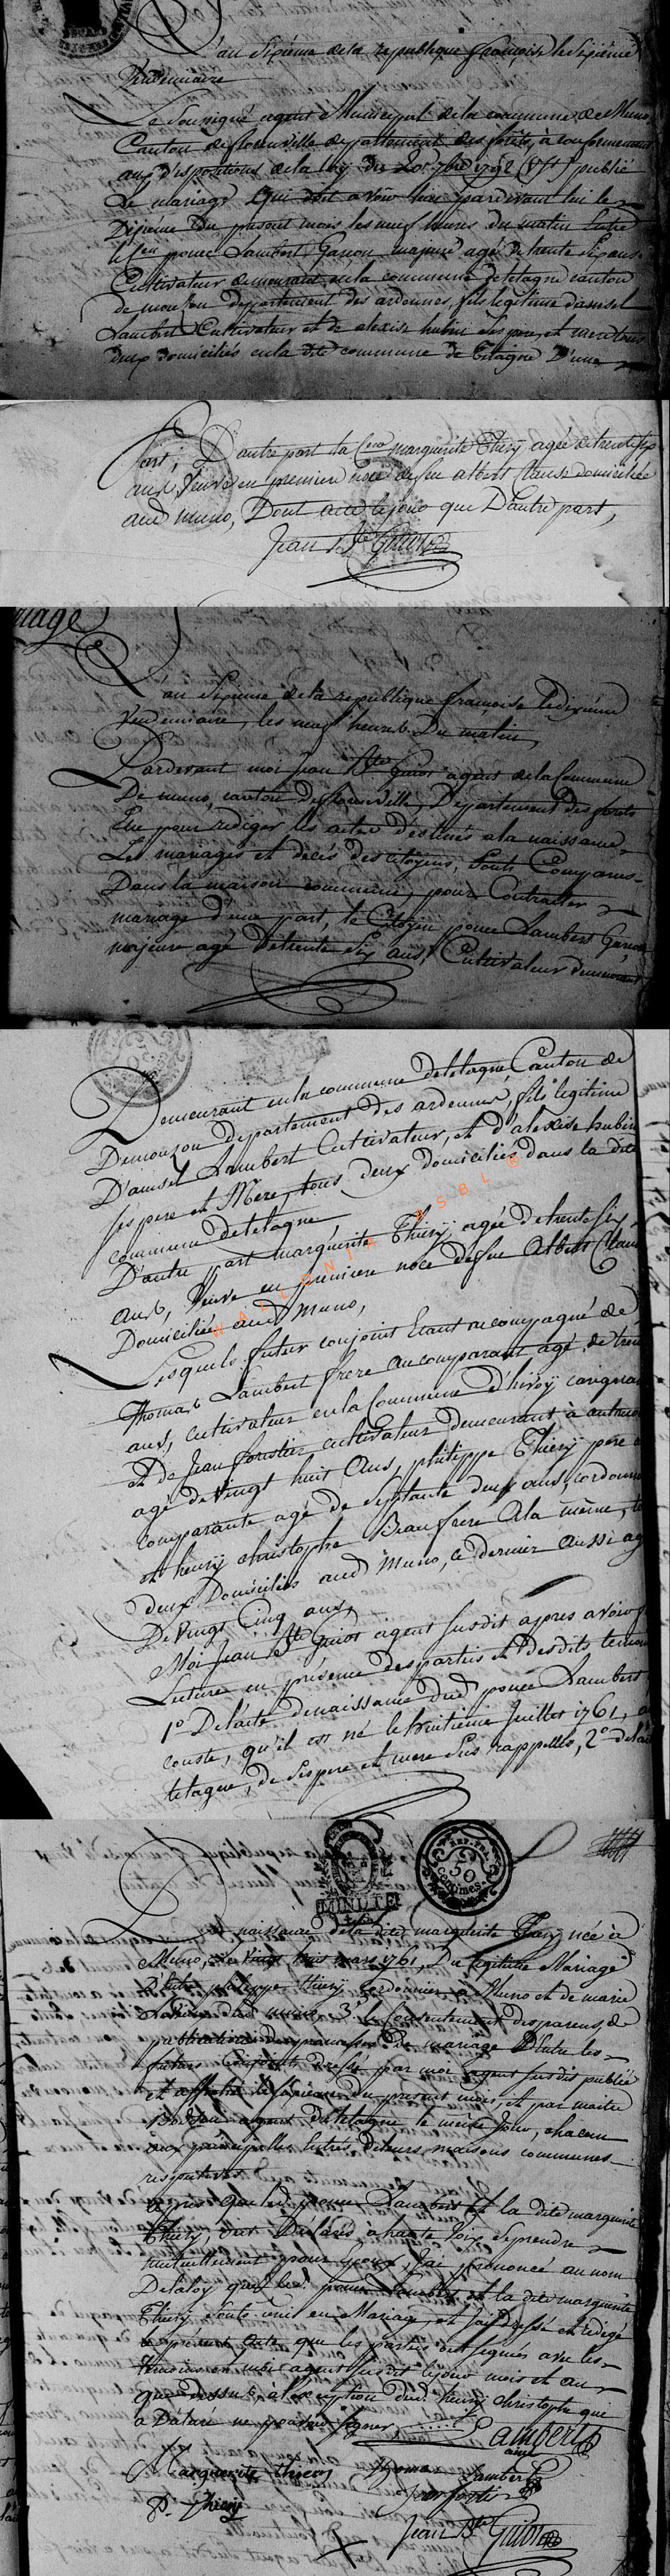 L'an Sixième de la republique françoise le Sixième
Vendemiaire
Le Soussigné agent Municipal de la commune de Muno
Canton de florenville departement des forêts, à conformement
aux dispositions de la loy du 20 7bre 1792 (Vst) publié
Le mariage qui doit avoir lieu pardevant lui le
Dixième du present mois les neuf heures du matin Entre
le Cen poncé Lambert Garçon majeure agé de trente Six ans
Cultivateur demeurant en la commune de tetagne canton
de mouzon departement des ardennes, fils legitime d'amsel
Lambert Cultivateur et de alexise hubin Ses pere et mere tous
deux domiciliés en la dite commune de tetagne D'une
part; D'autre part la Cene marguerite Thiery agée de trente Six
ans Veuve en premiere noce de feu albert Claus domiciliée
aud muno, Dont acte le jour que D'autre part,
Jean Bte Guiot
riage
L'an Sixieme de la republique françoise le dixieme
Vendemiaire, les neuf heures Du matin,
Pardevant moi Jean Bte Guiot agent de la Commune
De muno, canton de florenville, Departement des forêts
Elue pour rediger les actes déstinés a la naissance
Les mariages et décès des citoyens, Sont Comparus
Dans la maison commune, pour Contracter
mariage d'une part, le Citoyen poncé Lambert Garçon
majeure agé de trente Six ans, Cultivateur demeurant
Demeurant en la commune de tetagne, Canton de
Demouzon departement des ardennes, fils legitime
D'amsel Lambert Cultivateur, et d'alexise hubin
Ses pere et Mere, tous deux domiciliés dans la dite
commune de tetagne
D'autre part marguerite Thiery agée de trente Six
ans, Veuve en premiere noce de feu Albert Claus
Domiciliée aud Muno,
Lesquels futur conjoint Etant accompagné de
Thomas Lambert frere au comparant agé de
ans, cultivateur en la Commune d'hivoy carignan
et de Jean forestier cultivateur demeurant à
agé de Vingt huit Ans, philippe Thiery pere
comparante agé de Septante deux ans, cordonnier
et henry christophe Beau frere a la même,
deux Domiciliés aud Muno, ce dernier aussi agé
De Vingt Cinq ans,
Moi Jean Bte Guiot agent susdit apres avoir
Lecture en présence des parties et desdits temoins
1° De l'acte de naissance dud poncé Lambert
conste, qu'il est né le huitieme Juillet 1761,
tetagne, de Ses pere et mere Sus rappellés, 2° de
MINUTE
REP. FRA.
50
centimes
naissance de la dite marguerite Thiery née à
Muno, le Vingt trois mars 1761, Du legitime Mariage
D'entre philippe thiery cordonnier a Muno et de marie
dud muno, 3° le Consentement des parens, de
publication des promesses de mariage D'entre les
futurs Conjoints dressé par moi agent susdit publié
et affiché le Sixieme du present mois, et par maitre
agent de tetagne le même jour, chacun
aux principalles Entrés de leurs maisons communes
respectives
Apres que led poncé Lambert et la dite marguerite
Thiery ont Déclarés à haute Voix Se prendre
mutuellement pour Epoux, J'ai prononcé au nom
De la loy que led poncé Lambert et la dite marguerite
Thiery Sont unis en Mariage, et J'ai dressé et redigé
le présent acte que les parties ont signés avec les
temoins et moi agent susdit le jour mois et an
que dessus, à l'exception dud henry christophe qui
a Déclaré ne pouvoir Signer,
Lambert
ainé
Marguerite thiery Thomas Lambert
P. Thiery
Jean Bte Guiot
WALLONIA ASBL ®